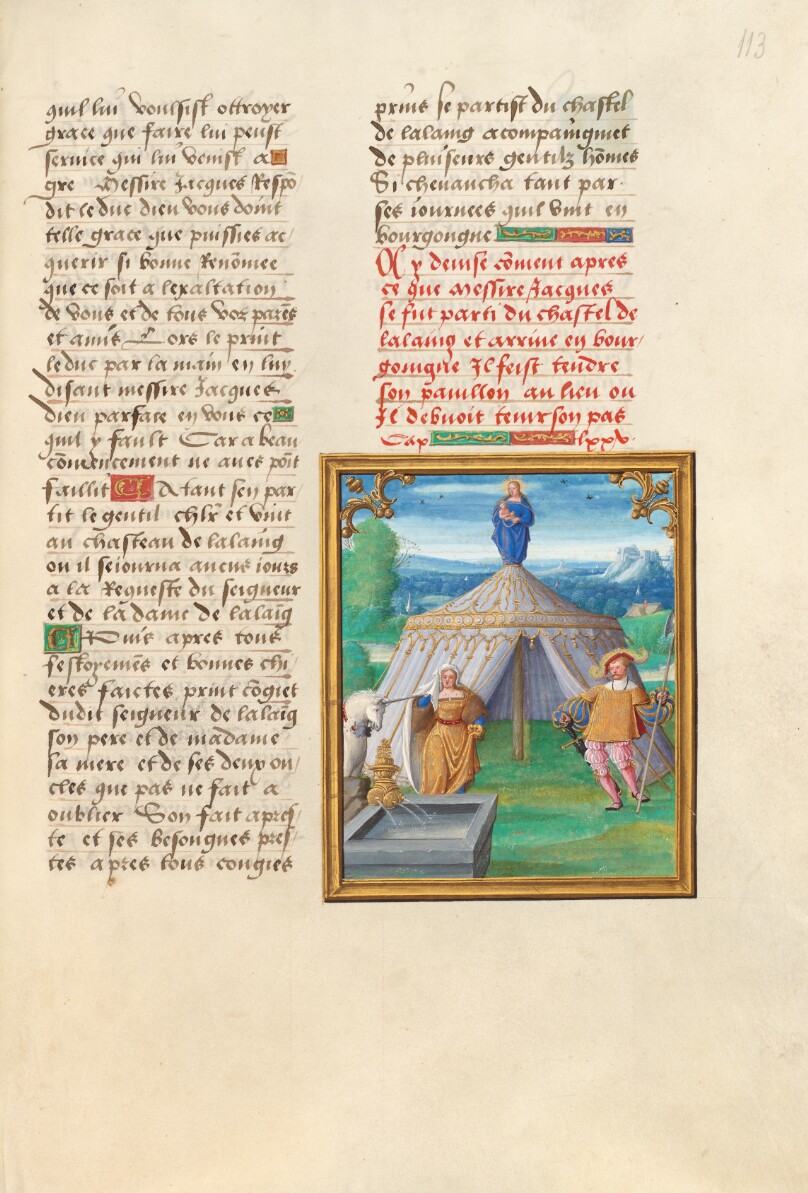 113
quil luy voulsist ottroyer
grace que faire lui peust
service qui luy venist a
gre Messire Jacques Respō
dit le duc dieu vous doint
telle grace que puissies ac
querir si bonne Renōmee
que ce soit a lexaltation
de vous et de tous voz parēs
et amis Lors le print
le duc par la main en luy
disant messire Jacques
dieu parface en vous ce
quil y fault Car a beau
cōmencement ne aves poīt
faillit Atant sen par
tit le gentil chlr et vint
au chasteau de lalaing
ou il sejourna aucūs jours
a la Requeste du seigneur
et de la dame de lalaīg
Puis apres tous
festoyemēs et bonnes chi
eres faictes print cōgiet
dudit seigneur de lalaīg
son pere et de madame
sa mere et de ses deux on
cles que pas ne fait a
oublier Son fait apres
te et ses besongnes pres
tes apres tous congies
prins se partist du chastel
de lalaing acompaigniet
de pluiseurs gentilz hōmes
Si chevaucha tant par
ses journees quil vint en
bourgongne
Cy devise cōment apres
ce que Messire Jacques
se fut parti du chastel de
lalaing et arrive en bour
gongne Il feist tendre
son pavillon au lieu ou
Il debvoit tenir son pas
Cap lxxv